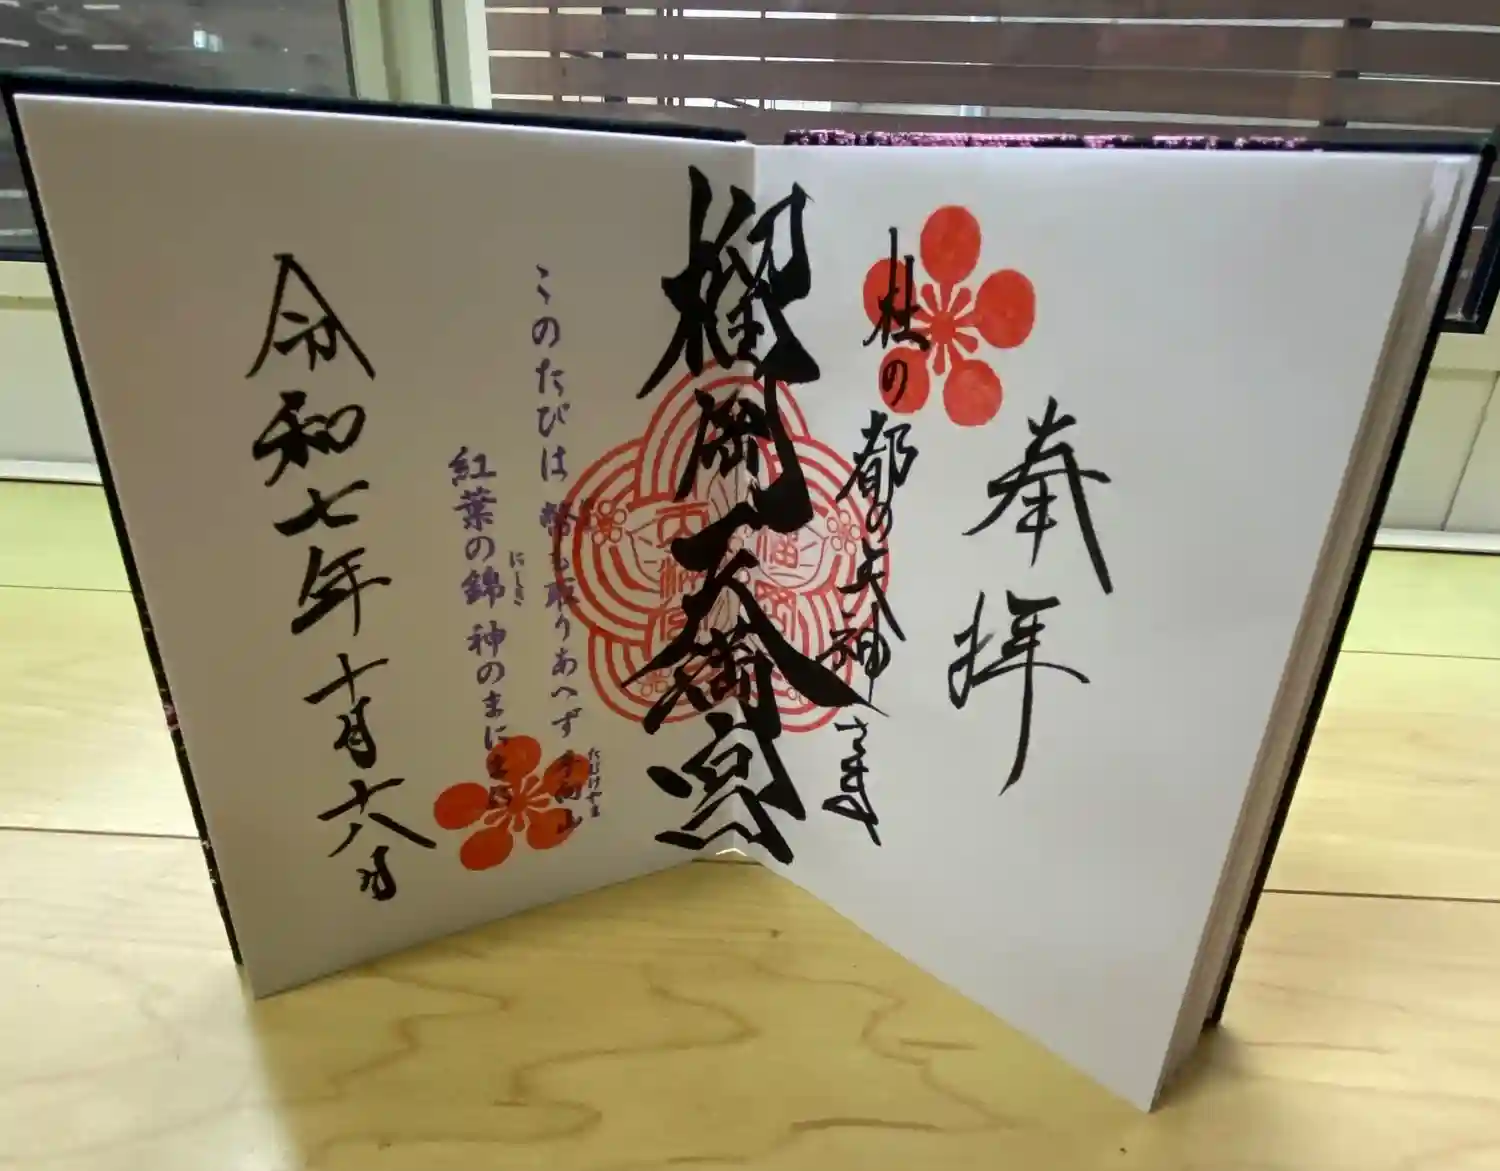 奉拝
杜の都の天神さま
榴岡天満宮
このたびは 幣も取りあへず 手向山
たむけやま
紅葉の錦 神のまにまに
にしき
令和七年十月十八日